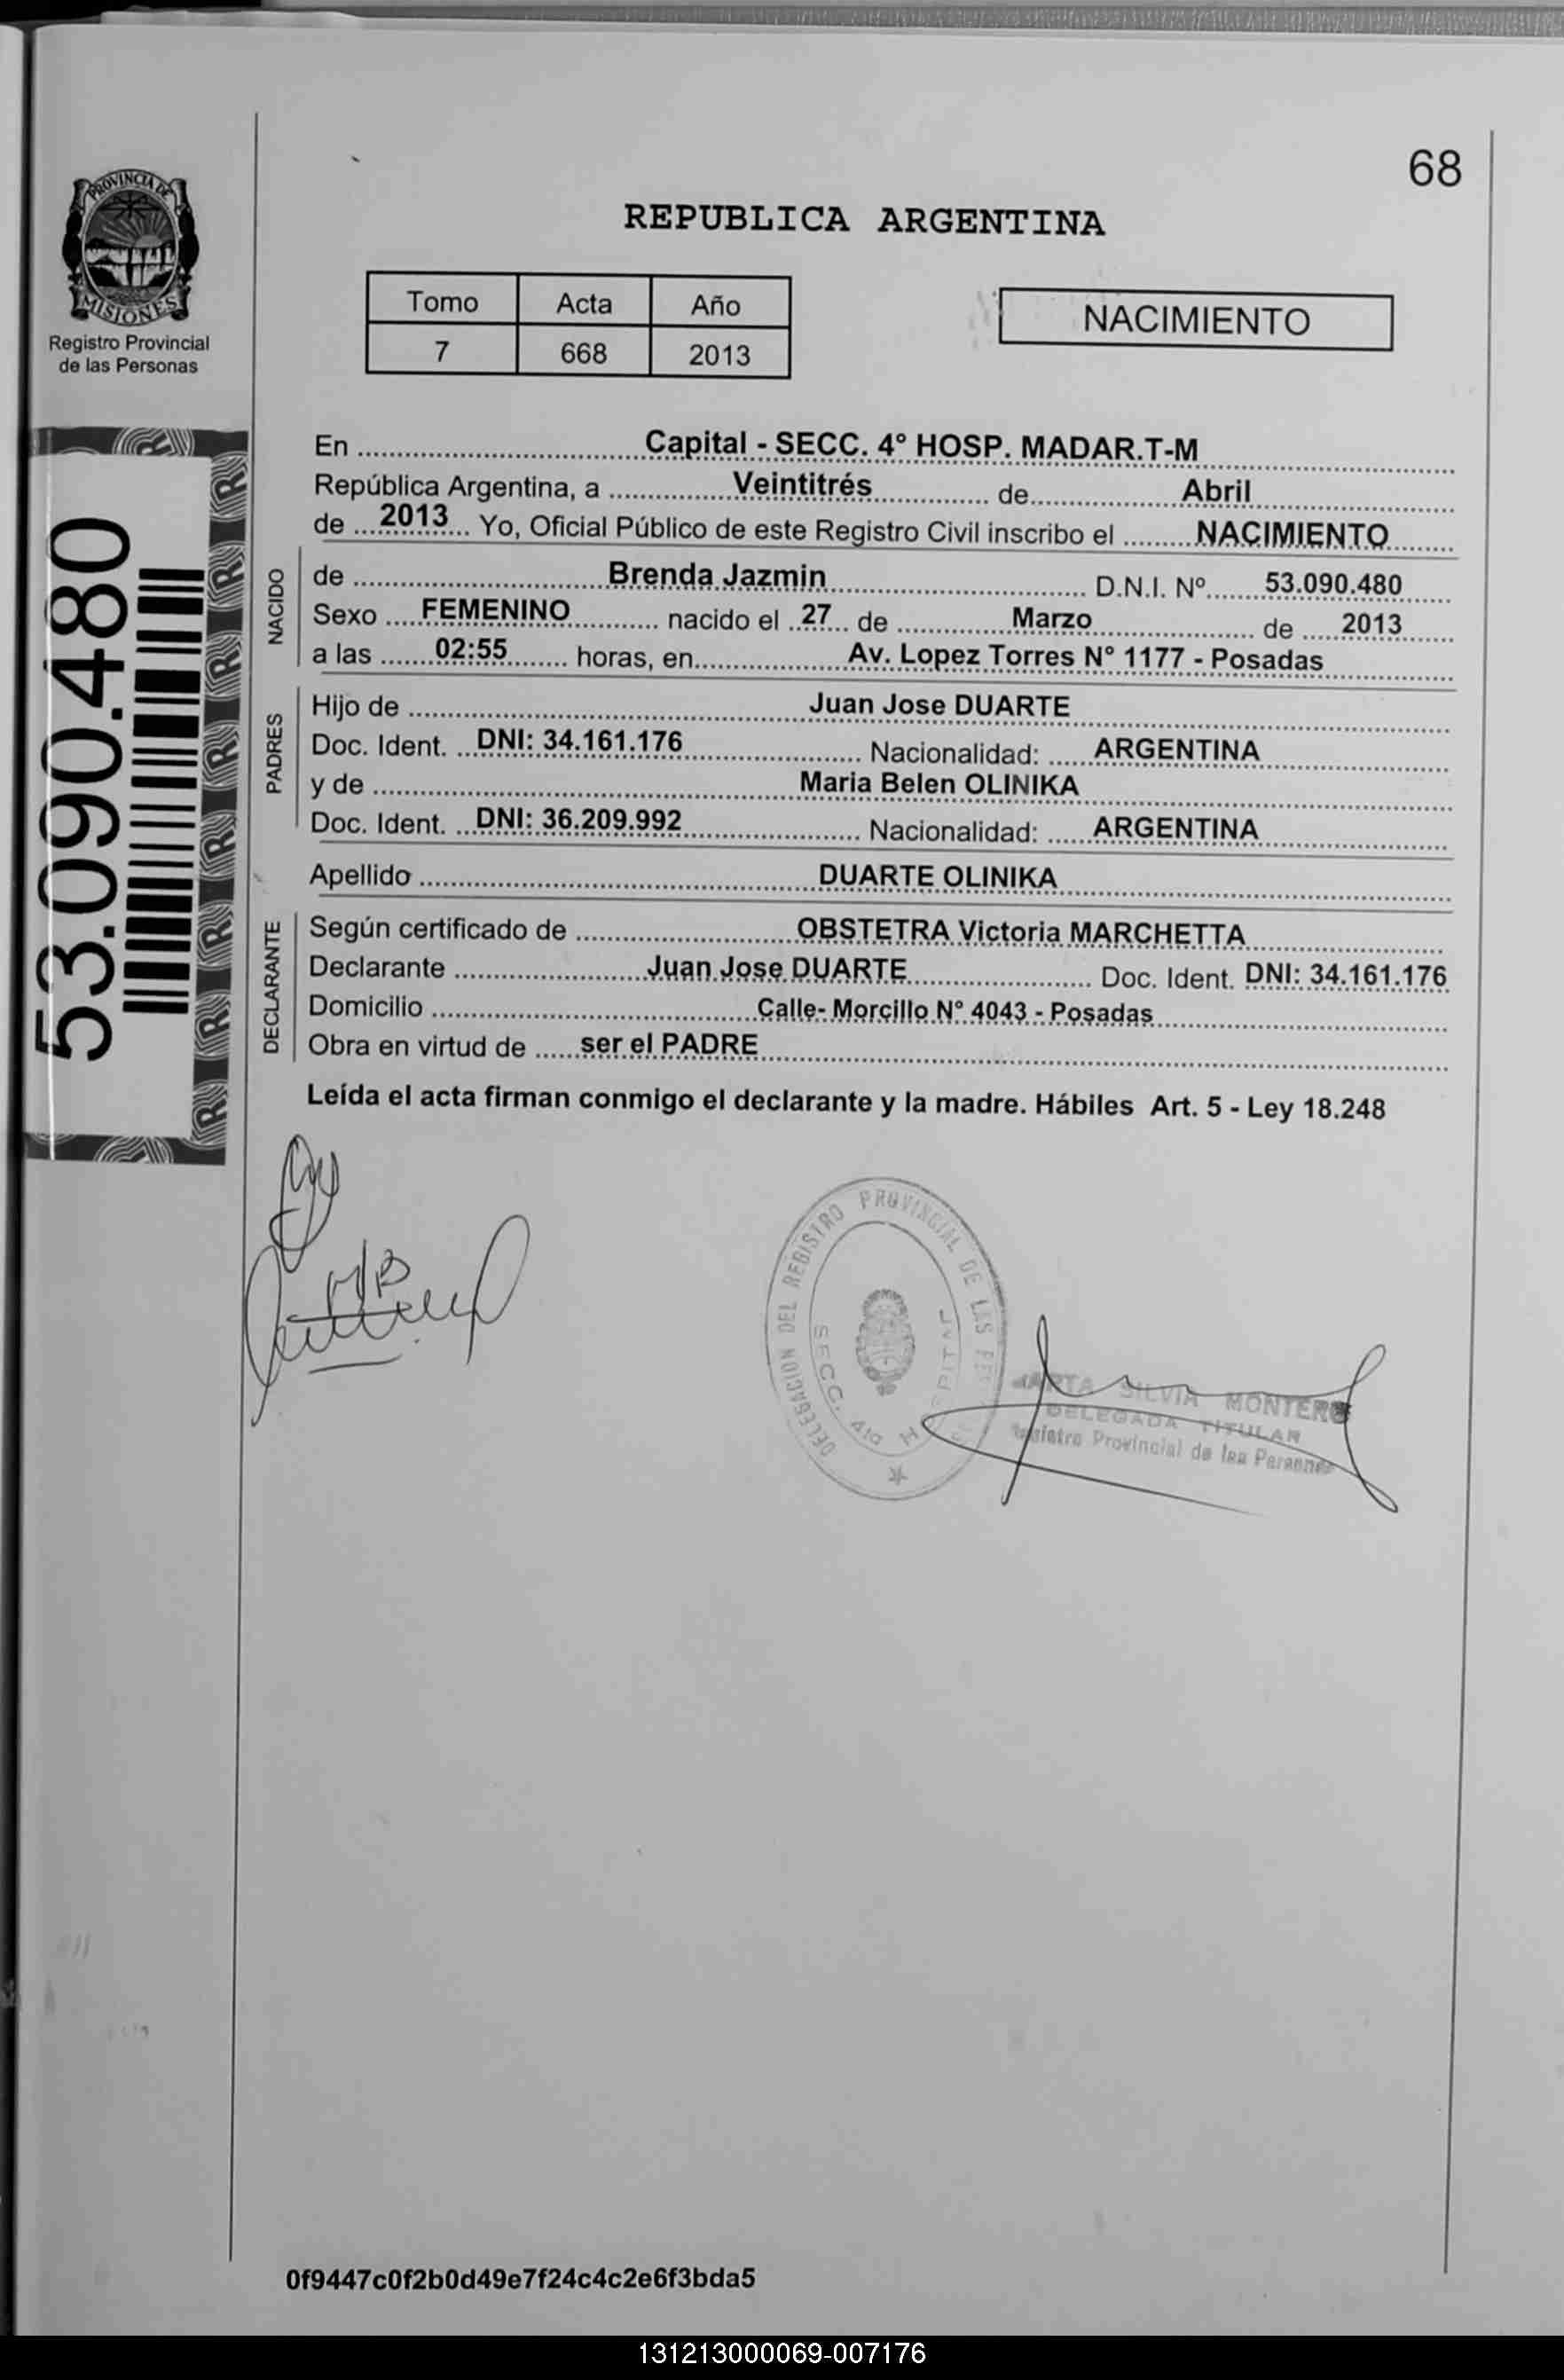 68
PROVINCIA DE
MISIONES
Registro Provincial
de las Personas
REPUBLICA ARGENTINA
Tomo Acta Año
7 668 2013
NACIMIENTO
53.090.480
En Capital - SECC. 4° HOSP. MADAR.T-M
República Argentina, a Veintitrés de Abril
de 2013 Yo, Oficial Público de este Registro Civil inscribo el NACIMIENTO
NACIDO
de Brenda Jazmin D.N.I. Nº 53.090.480
Sexo FEMENINO nacido el 27 de Marzo de 2013
a las 02:55 horas, en Av. Lopez Torres N° 1177 - Posadas
PADRES
Hijo de Juan Jose DUARTE
Doc. Ident. DNI: 34.161.176 Nacionalidad: ARGENTINA
y de Maria Belen OLINIKA
Doc. Ident. DNI: 36.209.992 Nacionalidad: ARGENTINA
Apellido DUARTE OLINIKA
DECLARANTE
Según certificado de OBSTETRA Victoria MARCHETTA
Declarante Juan Jose DUARTE Doc. Ident. DNI: 34.161.176
Domicilio Calle- Morcillo N° 4043 - Posadas
Obra en virtud de ser el PADRE
Leída el acta firman conmigo el declarante y la madre. Hábiles Art. 5 - Ley 18.248
DELEGACION DEL REGISTRO PROVINCIAL DE LAS
SECC. 4ta
SILVIA MONTERO
DELEGADA TITULAR
Provincial de las
0f9447c0f2b0d49e7f24c4c2e6f3bda5
131213000069-007176